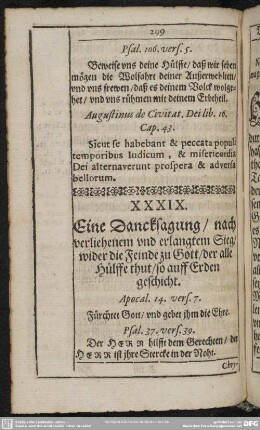 299
Psal. 106. vers. 5.
Beweise vns deine Hülffe/ daß wir sehen
mögen die Wolfahrt deiner Außerwehlten/
vnd vns frewen/ daß es deinem Volck wolge-
het/ vnd vns rühmen mit deinem Erbtheil.
Augustinus de Civitat. Dei lib. 16.
Cap. 43.
Sicut se habebant & peccata populi
temporibus Iudicum, & misericordia
Dei alternaverunt prospera & adversa
bellorum.
XXXIX.
Eine Dancksagung/ nach
verliehenem vnd erlangtem Sieg/
wider die Feinde zu Gott/ der alle
Hülffe thut/ so auff Erden
geschicht.
Apocal. 14. vers. 7.
Fürchtet Gott/ vnd gebet ihm die Ehre.
Psal. 37. vers. 39.
Der HERR hilfft dem Gerechten/ der
HERR ist ihre Stercke in der Noht.
Chry-